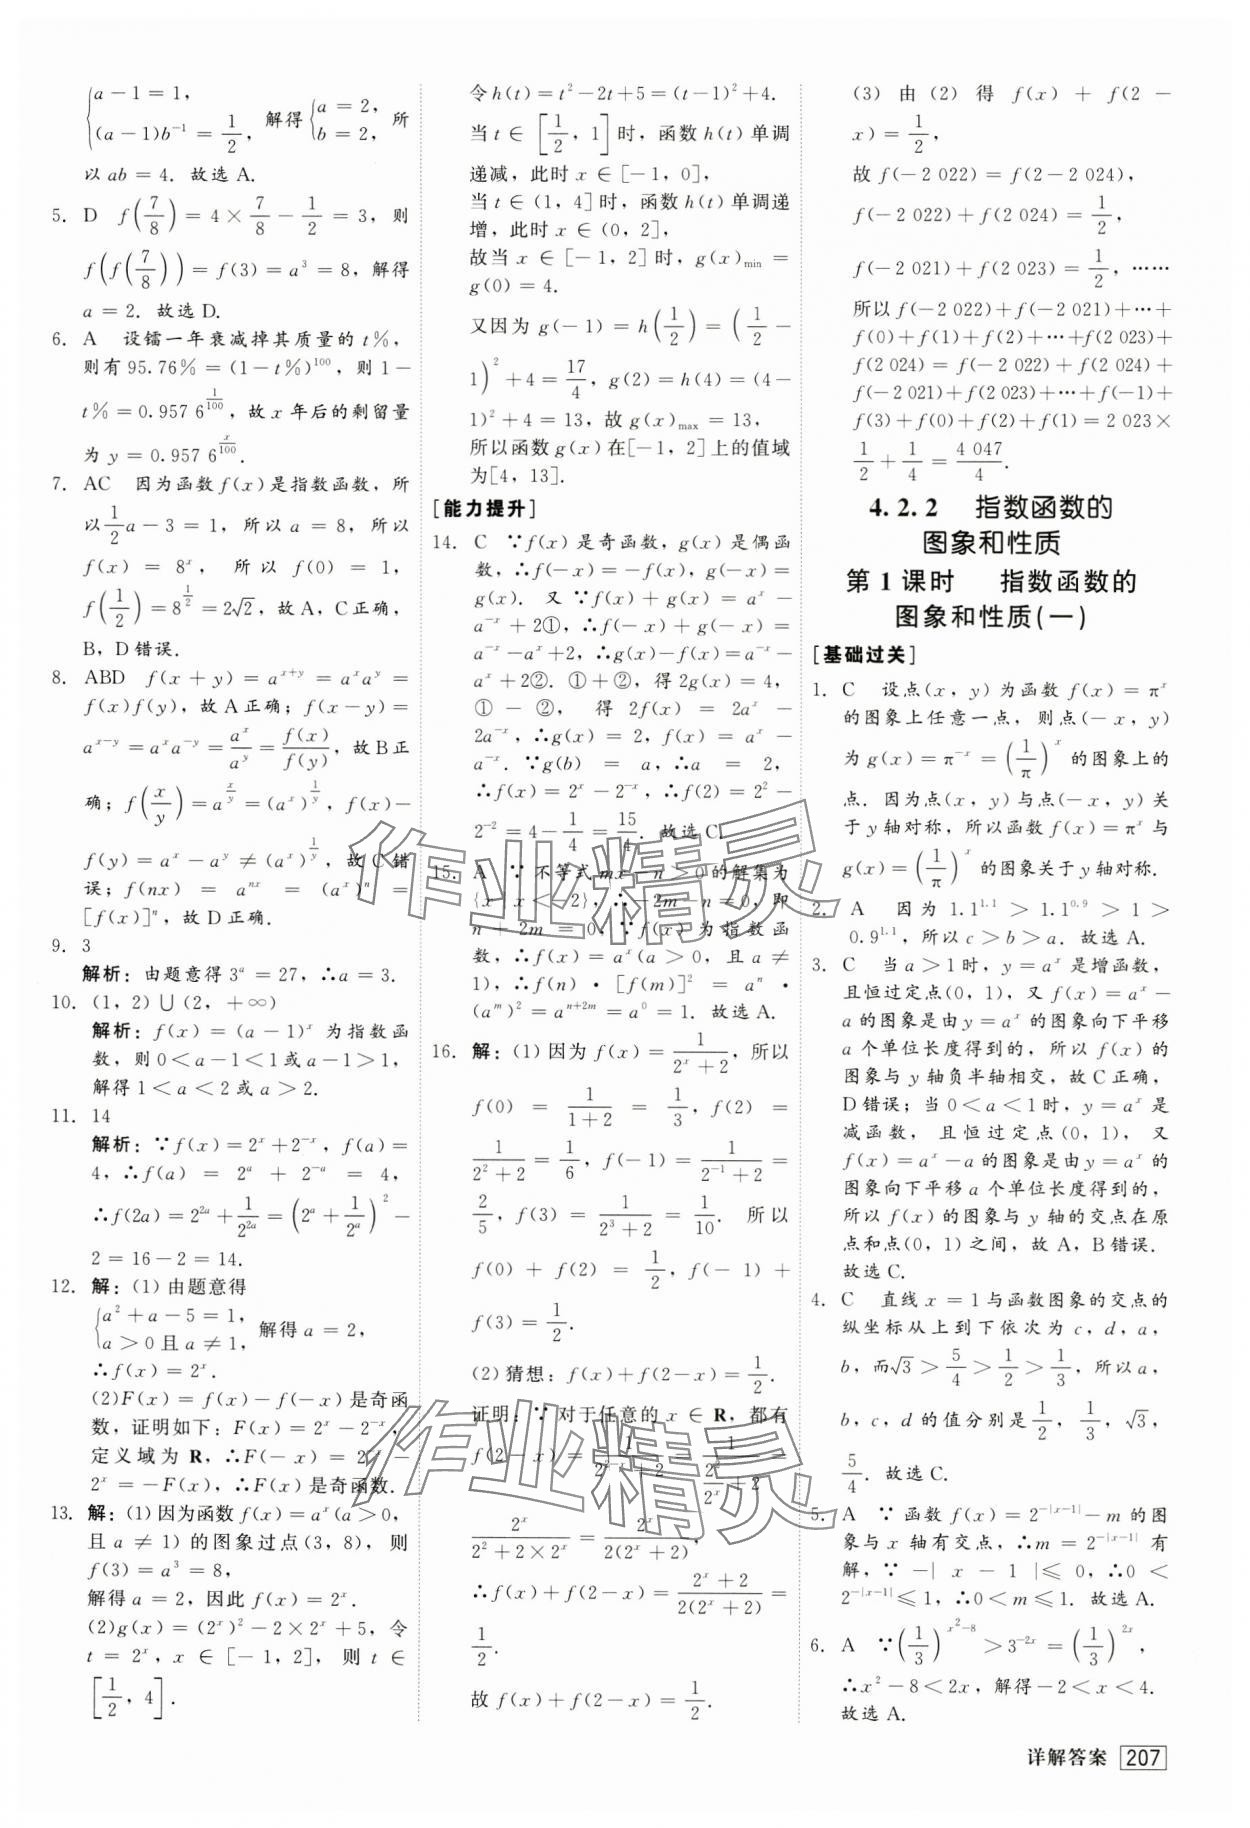 {a－1＝1，
(a－1)b⁻¹＝1/2，解得{a＝2，b＝2，所
以 ab＝4．故选 A.
5． D　f(7/8)＝4×7/8－1/2＝3，则
f(f(7/8))＝f(3)＝a³＝8，解得
a＝2．故选 D.
6． A　设镭一年衰减掉其质量的 t%，
则有 95.76%＝(1－t%)¹⁰⁰，则 1－
t%＝0.957 6^(1/100)，故 x 年后的剩留量
为 y＝0.957 6^(x/100)．
7． AC　因为函数 f(x)是指数函数，所
以1/2a－3＝1，所以 a＝8，所以
f(x)＝8ˣ，所以 f(0)＝1，
f(1/2)＝8^(1/2)＝2√2，故 A，C 正确，
B，D 错误．
8． ABD　f(x＋y)＝a^(x+y)＝aˣaʸ＝
f(x)f(y)，故 A 正确；f(x－y)＝
a^(x－y)＝aˣa^(－y)＝aˣ/aʸ＝f(x)/f(y)，故 B 正
确；f(x/y)＝a^(x/y)＝(aˣ)^(1/y)，f(x)－
f(y)＝aˣ－aʸ≠(aˣ)^(1/y)，故 C 错
误；f(nx)＝a^(nx)＝(aˣ)ⁿ＝
[f(x)]ⁿ，故 D 正确．
9． 3
解析：由题意得 3ᵃ＝27，∴a＝3.
10．(1，2)∪(2，＋∞)
解析：f(x)＝(a－1)ˣ 为指数函
数，则 0＜a－1＜1 或 a－1＞1，
解得 1＜a＜2 或 a＞2.
11． 14
解析：∵f(x)＝2ˣ＋2^(－x)，f(a)＝
4，∴f(a)＝2ᵃ＋2^(－a)＝4，
∴f(2a)＝2^(2a)＋1/2^(2a)＝(2ᵃ＋1/2ᵃ)²－
2＝16－2＝14.
12．解：(1)由题意得
{a²＋a－5＝1，
a＞0且a≠1，解得 a＝2，
∴f(x)＝2ˣ.
(2)F(x)＝f(x)－f(－x)是奇函
数，证明如下：F(x)＝2ˣ－2^(－x)，
定义域为 R，∴F(－x)＝2^(－x)－
2ˣ＝－F(x)，∴F(x)是奇函数．
13．解：(1)因为函数 f(x)＝aˣ(a＞0，
且 a≠1)的图象过点(3，8)，则
f(3)＝a³＝8，
解得 a＝2，因此 f(x)＝2ˣ.
(2)g(x)＝(2ˣ)²－2×2ˣ＋5，令
t＝2ˣ，x∈[－1，2]，则 t∈
[1/2，4]．
令 h(t)＝t²－2t＋5＝(t－1)²＋4.
当 t∈[1/2，1]时，函数 h(t)单调
递减，此时 x∈[－1，0]，
当 t∈(1，4]时，函数 h(t)单调递
增，此时 x∈(0，2]，
故当 x∈[－1，2]时，g(x)min＝
g(0)＝4.
又因为 g(－1)＝h(1/2)＝(1/2－
1)²＋4＝17/4，g(2)＝h(4)＝(4－
1)²＋4＝13，故 g(x)max＝13，
所以函数 g(x)在[－1，2]上的值域
为[4，13]．
[能力提升]
14． C　∵f(x)是奇函数，g(x)是偶函
数，∴f(－x)＝－f(x)，g(－x)＝
g(x)．又∵f(x)＋g(x)＝aˣ－
a^(－x)＋2①，∴f(－x)＋g(－x)＝
a^(－x)－aˣ＋2，∴g(x)－f(x)＝a^(－x)－
aˣ＋2②．①＋②，得 2g(x)＝4，
①－②，得 2f(x)＝2aˣ－
2a^(－x)，∴g(x)＝2，f(x)＝aˣ－
a^(－x)．∵g(b)＝a，∴a＝2，
∴f(x)＝2ˣ－2^(－x)，∴f(2)＝2²－
2⁻²＝4－1/4＝15/4．故选 C.
15． A　∵不等式 mx－n＞0 的解集为
{x|x＜－2}，∴－2m－n＝0，即
n＋2m＝0，∵f(x)为指数函
数，∴f(x)＝aˣ(a＞0，且 a≠
1)，∴f(n)·[f(m)]²＝aⁿ·
(aᵐ)²＝a^(n+2m)＝a⁰＝1．故选 A.
16．解：(1)因为 f(x)＝1/(2ˣ＋2)，所以
f(0)＝1/(1＋2)＝1/3，f(2)＝
1/(2²＋2)＝1/6，f(－1)＝1/(2⁻¹＋2)＝
2/5，f(3)＝1/(2³＋2)＝1/10．所以
f(0)＋f(2)＝1/2，f(－1)＋
f(3)＝1/2.
(2)猜想：f(x)＋f(2－x)＝1/2.
证明：∵对于任意的 x∈R，都有
f(2－x)＝1/(2^(2－x)＋2)＝1/(2²/2ˣ＋2)＝
2ˣ/(2²＋2×2ˣ)＝2ˣ/(2(2ˣ＋2))，
∴f(x)＋f(2－x)＝(2ˣ＋2)/(2(2ˣ＋2))＝
1/2.
故 f(x)＋f(2－x)＝1/2.
(3) 由 (2) 得 f(x)＋f(2－
x)＝1/2，
故 f(－2 022)＝f(2－2 024)，
f(－2 022)＋f(2 024)＝1/2，
f(－2 021)＋f(2 023)＝1/2，……
所以 f(－2 022)＋f(－2 021)＋…＋
f(0)＋f(1)＋f(2)＋…＋f(2 023)＋
f(2 024)＝f(－2 022)＋f(2 024)＋
f(－2 021)＋f(2 023)＋…＋f(－1)＋
f(3)＋f(0)＋f(2)＋f(1)＝2 023×
1/2＋1/4＝4 047/4.
4.2.2　指数函数的
图象和性质
第 1 课时　指数函数的
图象和性质(一)
[基础过关]
1． C　设点(x，y)为函数 f(x)＝πˣ
的图象上任意一点，则点(－x，y)
为 g(x)＝π^(－x)＝(1/π)ˣ的图象上的
点．因为点(x，y)与点(－x，y)关
于 y 轴对称，所以函数 f(x)＝πˣ 与
g(x)＝(1/π)ˣ 的图象关于 y 轴对称．
2． A　因为 1.1^1.1＞1.1^0.9＞1＞
0.9^1.1，所以 c＞b＞a．故选 A.
3． C　当 a＞1 时，y＝aˣ 是增函数，
且恒过定点(0，1)，又 f(x)＝aˣ－
a 的图象是由 y＝aˣ 的图象向下平移
a 个单位长度得到的，所以 f(x)的
图象与 y 轴负半轴相交，故 C 正确，
D 错误；当 0＜a＜1 时，y＝aˣ 是
减函数，且恒过定点(0，1)，又
f(x)＝aˣ－a 的图象是由 y＝aˣ 的
图象向下平移 a 个单位长度得到的，
所以 f(x)的图象与 y 轴的交点在原
点和点(0，1)之间，故 A，B 错误．
故选 C.
4． C　直线 x＝1 与函数图象的交点的
纵坐标从上到下依次为 c，d，a，
b，而√3＞5/4＞1/2＞1/3，所以 a，
b，c，d 的值分别是1/2，1/3，√3，
5/4．故选 C.
5． A　∵函数 f(x)＝2^(－|x－1|)－m 的图
象与 x 轴有交点，∴m＝2^(－|x－1|) 有
解，∵－|x－1|≤0，∴0＜
2^(－|x－1|)≤1，∴0＜m≤1．故选 A.
6． A　∵(1/3)^(x²－8)＞3^(－2x)＝(1/3)^(2x)，
∴x²－8＜2x，解得－2＜x＜4.
故选 A.
详解答案 207
作业精灵
作业精灵